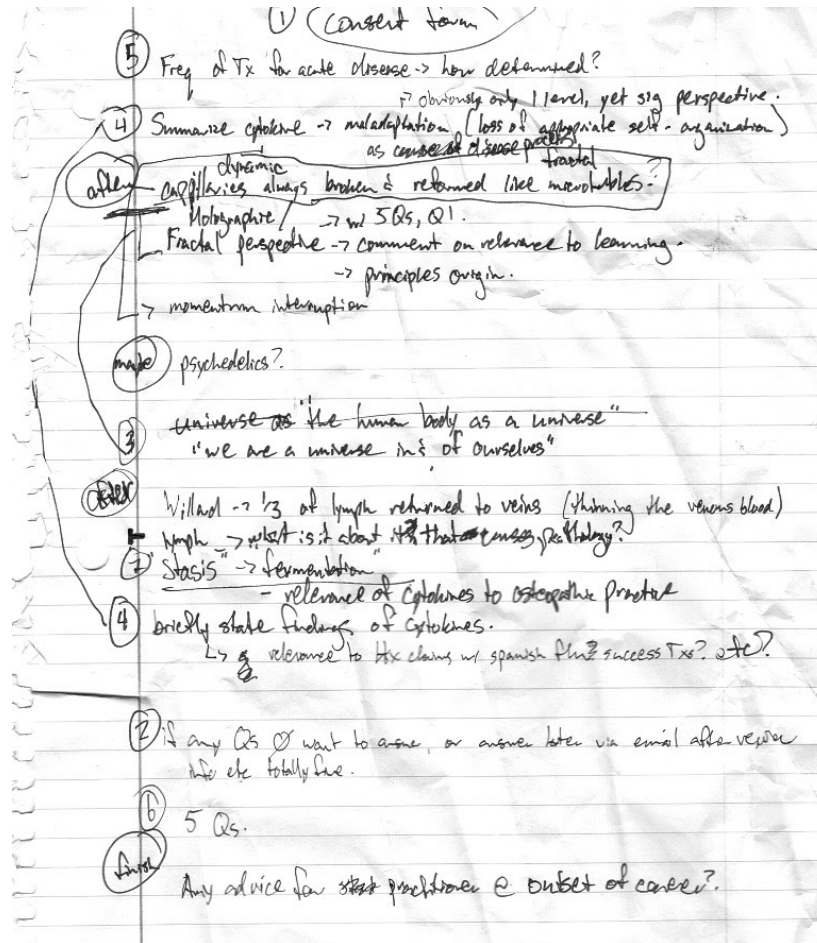 ① Consent form
⑤ Freq of Tx for acute disease -> how determined?
-> obviously only 1 level, yet sig perspective.
④ Summarize cytokine -> maladaptation (loss of appropriate self-organization)
as cause of disease process
dynamic fractal
after capillaries always broken & reformed like microtubules.?
Holographic / -> w/ 5Qs, Q1.
Fractal perspective -> comment on relevance to learning.
-> principles origin.
-> momentum interruption
maybe psychedelics?
universe as "the human body as a universe"
③ "we are a universe in & of ourselves"
after Willard -> 1/3 of lymph returned to veins (thinning the venous blood)
lymph -> what is it about it that causes pathology?
"Stasis" -> fermentation"
- relevance of cytokines to osteopathic practice
④ briefly state findings of cytokines.
relevance to Hx claims w/ spanish flu? success Txs? etc?
② if any Qs Ø want to answer, or answer later via email after review
info etc totally fine.
⑥ 5 Qs.
finish
Any advice for start practitioner @ outset of career?